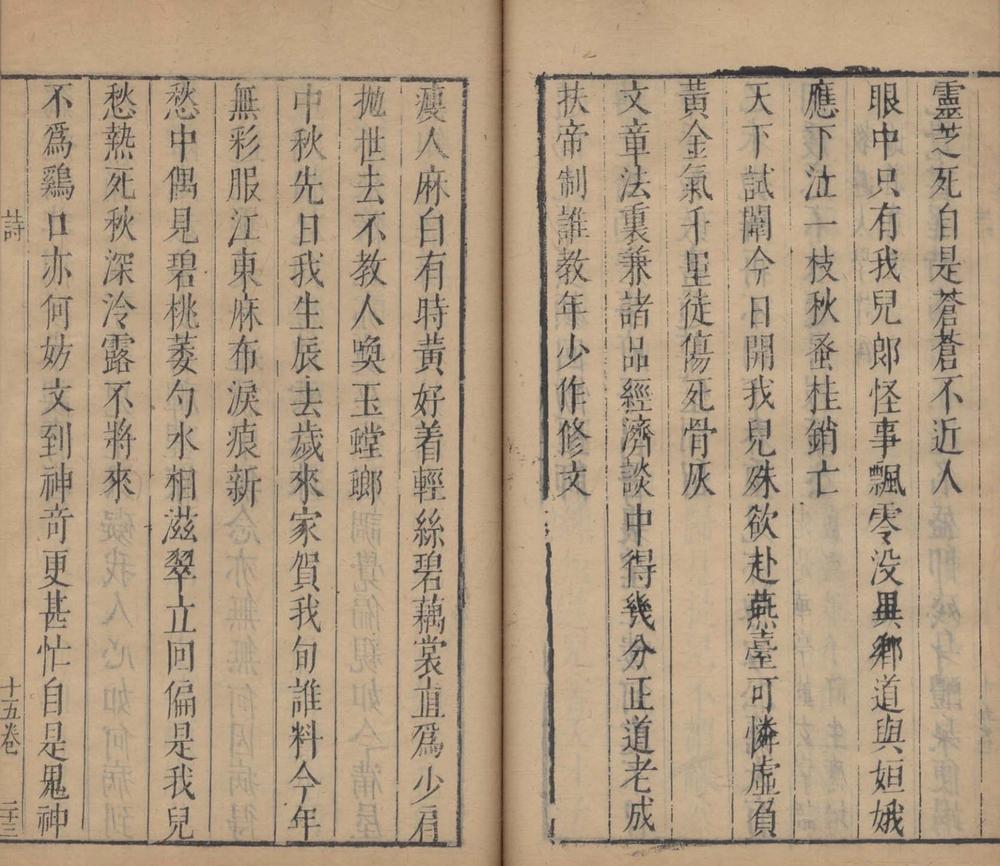 靈芝死自是蒼蒼不近人
眼中只有我兒郎怪事飄零没異鄉道與姮娥
應下泣一枝秋蚤桂銷亡
天下試闈今日開我兒殊欲赴燕臺可憐虛負
黃金氣千里徒傷死骨灰
文章法裏兼諸品經濟談中得幾分正道老成
扶帝制誰教年少作修文
瘦人麻白有時黃好着輕絲碧藕裳直爲少君
抛世去不教人喚玉螳螂
中秋先日我生辰去歲來家賀我旬誰料今年
無彩服江東麻布淚痕新
愁中偶見碧桃菱勺水相滋翠立回偏是我兒
愁熱死秋深泠露不將來
不爲鷄口亦何妨文到神奇更甚忙自是鬼神
詩
十五卷
二十三